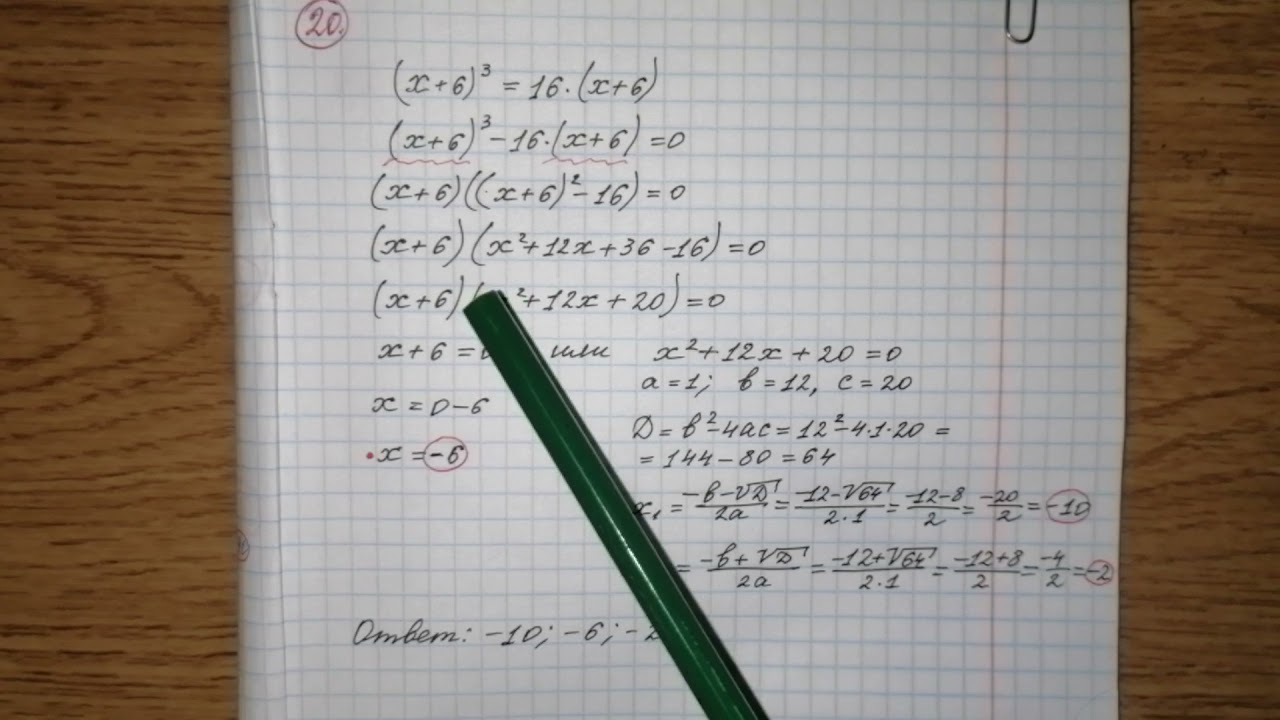 20.
(x+6)³ = 16·(x+6)
(x+6)³ - 16·(x+6) = 0
(x+6)((x+6)² - 16) = 0
(x+6)(x²+12x+36-16) = 0
(x+6)( ²+12x+20) = 0
x+6 = или x²+12x+20 = 0
a = 1; в = 12, c = 20
x = 0-6
D = в²-4ac = 12²-4·1·20 =
= 144-80 = 64
·x = -6
x₁ = (-в-√D)/2a = (-12-√64)/2·1 = (-12-8)/2 = -20/2 = -10
= (-в+√D)/2a = (-12+√64)/2·1 = (-12+8)/2 = -4/2 = -2
Ответ: -10; -6; -2